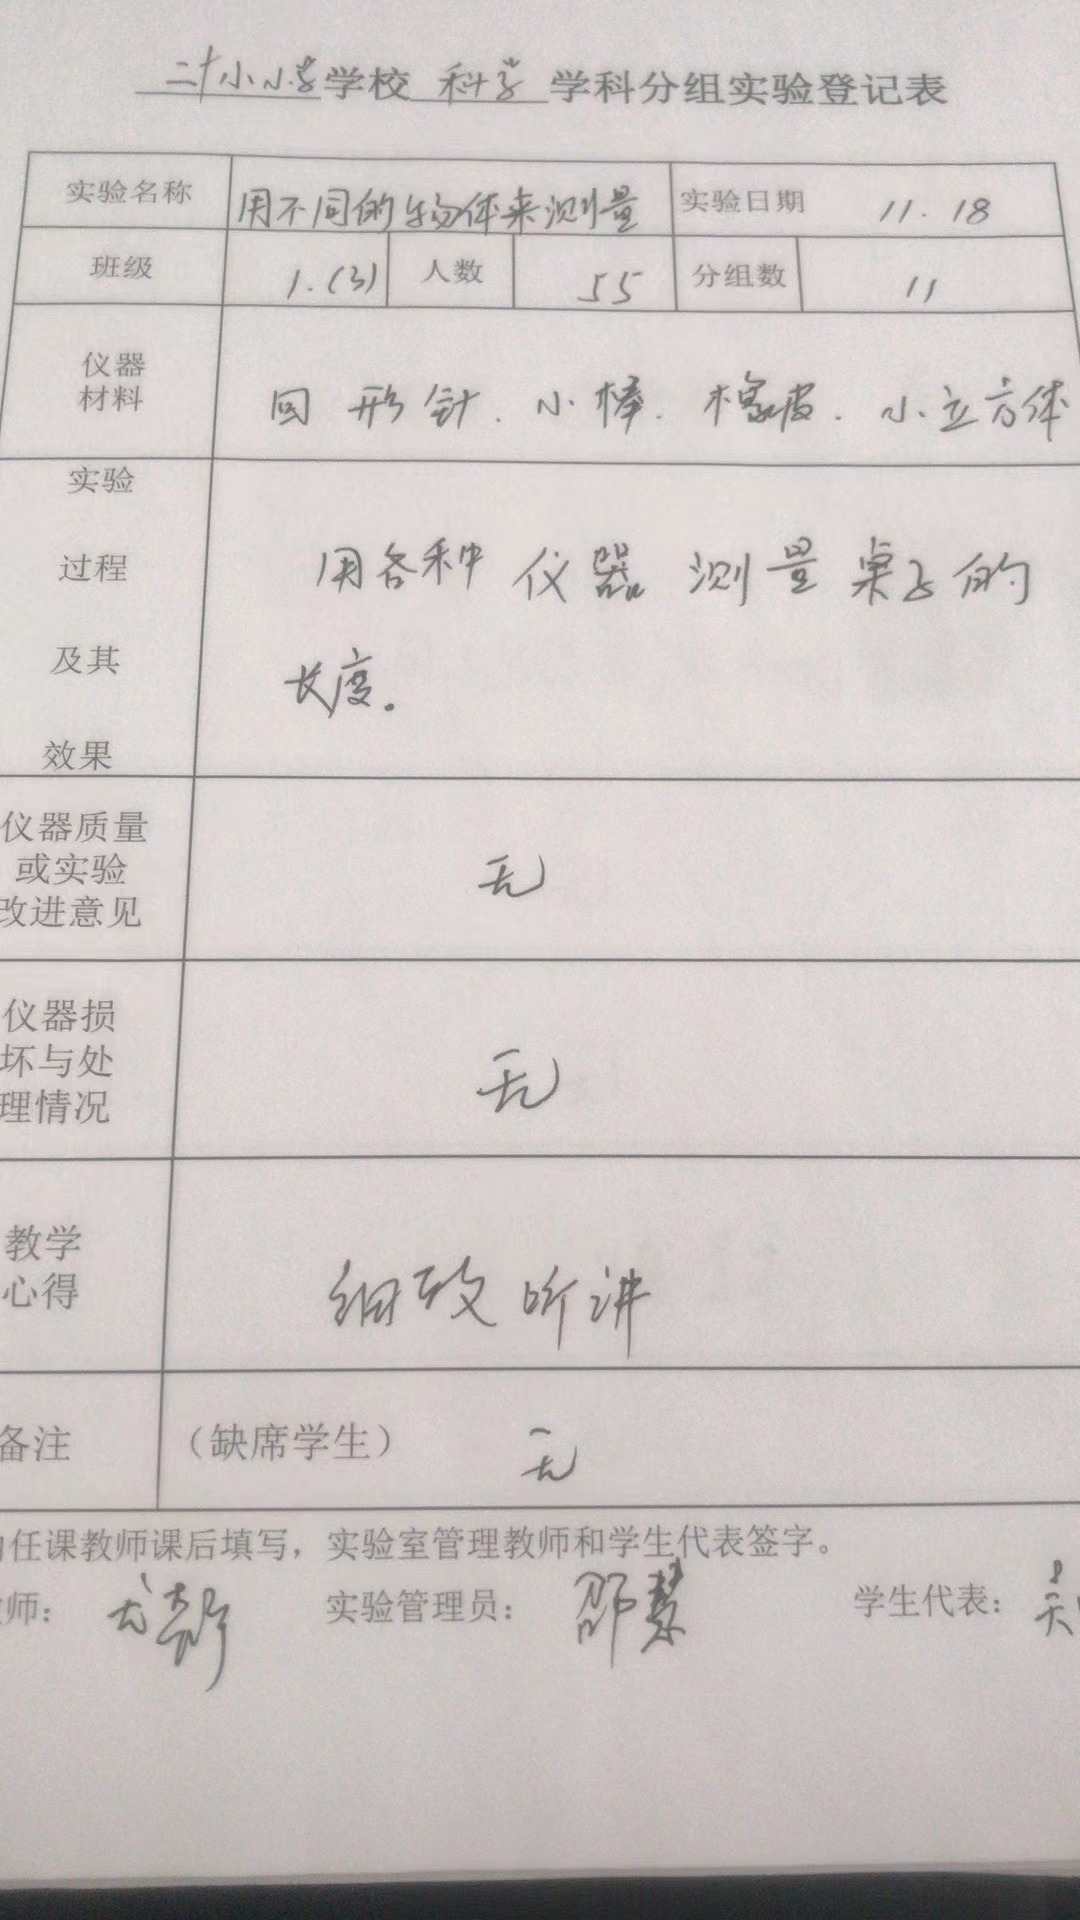 二十小小学学校 科学 学科分组实验登记表
实验名称 用不同的物体来测量 实验日期 11.18
班级 1.(3) 人数 55 分组数 11
仪器
材料
回形针.小棒.橡皮.小立方体
实验
过程
及其
效果
用各种仪器测量桌子的
长度.
仪器质量
或实验
改进意见
无
仪器损
坏与处
理情况
无
教学
心得
细致听讲
备注 (缺席学生) 无
任课教师课后填写，实验室管理教师和学生代表签字。
师： 实验管理员：邵慧 学生代表：